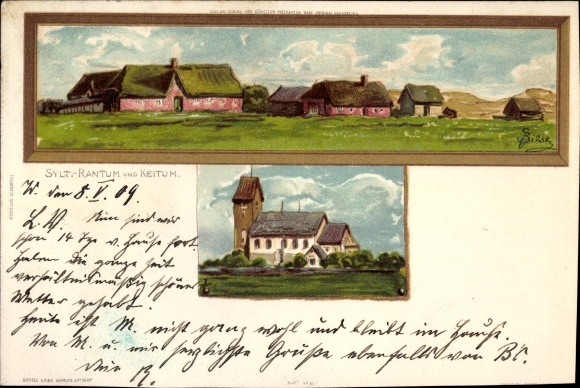 Biese
SYLT.-RANTUM UND KEITUM.
W. den 8. V. 09.
L. V. Nun sind wir
schon 14 Tge v. Hause fort
haben die ganze Zeit
verhältnißmäßig schönes
Wetter gehabt.
Heute ist M. nicht ganz wohl und bleibt im Hause.
Von M. u. mir herzlichste Grüße ebenfalls von B's.
Dein